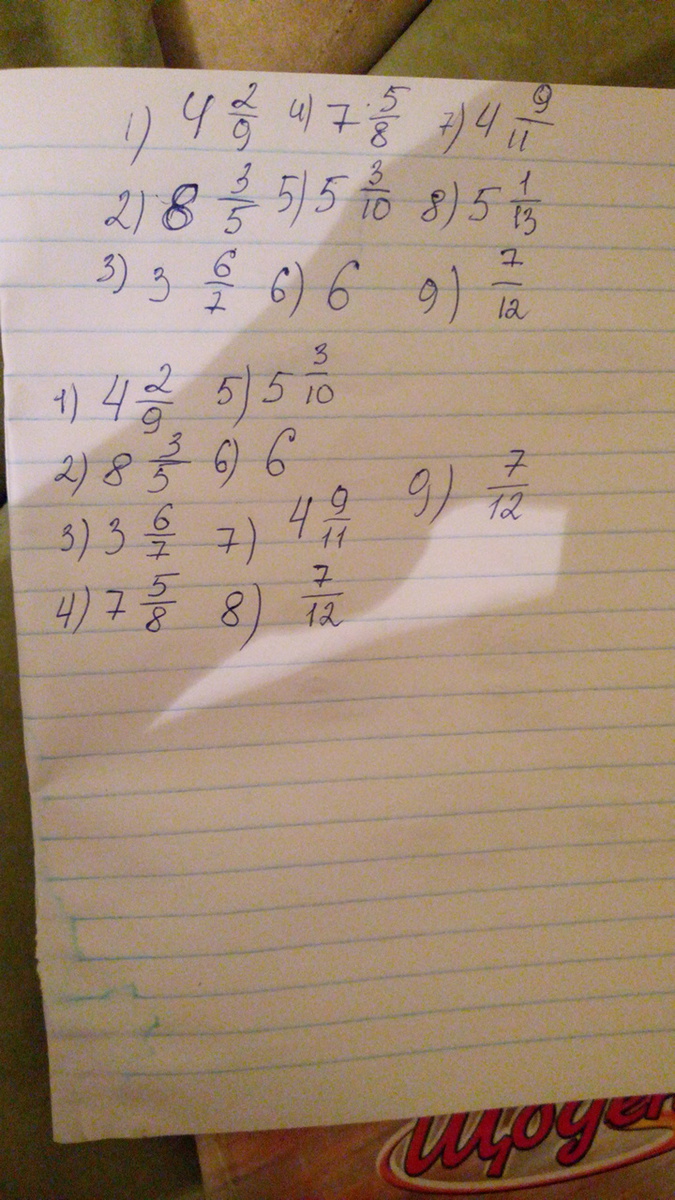 1) 4 2/9 4) 7 5/8 7) 4 9/11
2) 8 3/5 5) 5 3/10 8) 5 1/13
3) 3 6/7 6) 6 9) 7/12
1) 4 2/9 5) 5 3/10
2) 8 3/5 6) 6 9) 7/12
3) 3 6/7 7) 4 9/11
4) 7 5/8 8) 7/12